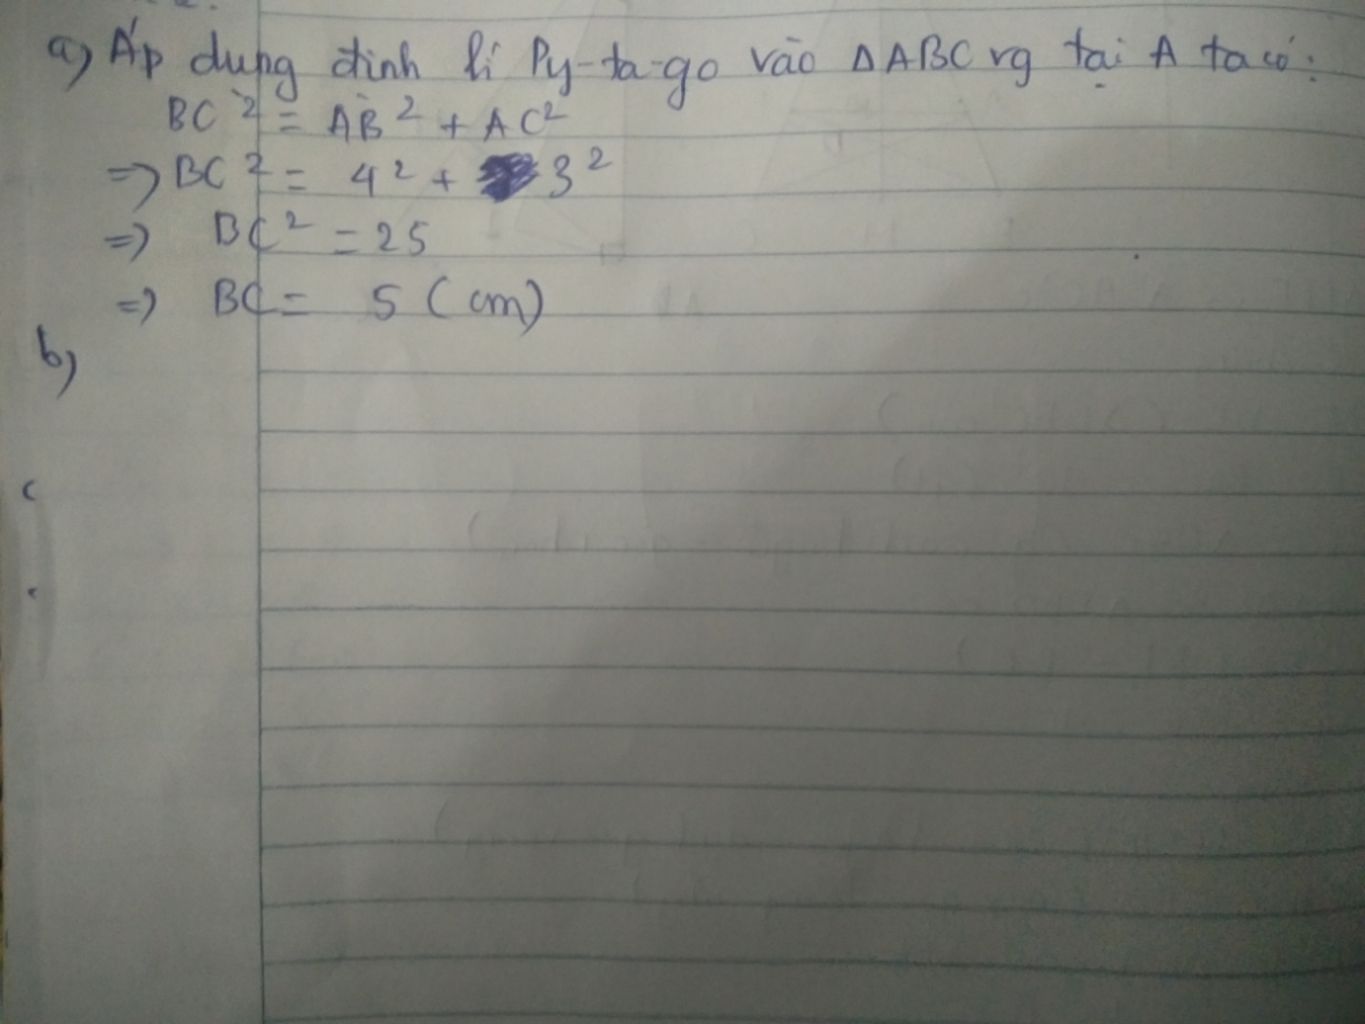 a) Áp dụng định lí Py-ta-go vào ΔABC vg tại A ta có:
BC² = AB² + AC²
=> BC² = 4² + 3²
=> BC² = 25
=> BC = 5 (cm)
b)